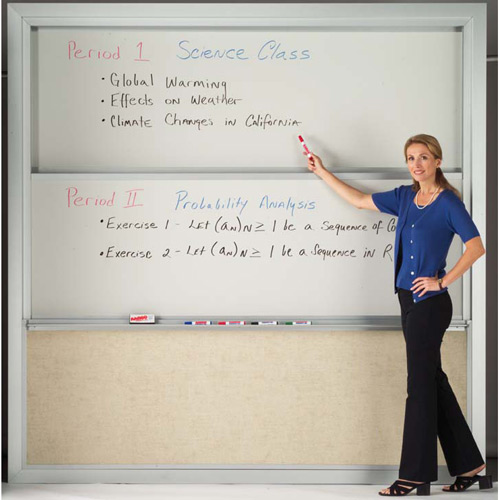 Period 1 Science Class
• Global Warming
• Effects on Weather
• Climate Changes in California
Period II Probability Analysis
• Exercise 1 - Let (aN)N ≥ 1 be a Sequence of Co
• Exercise 2 - Let (aN)N ≥ 1 be a Sequence in R